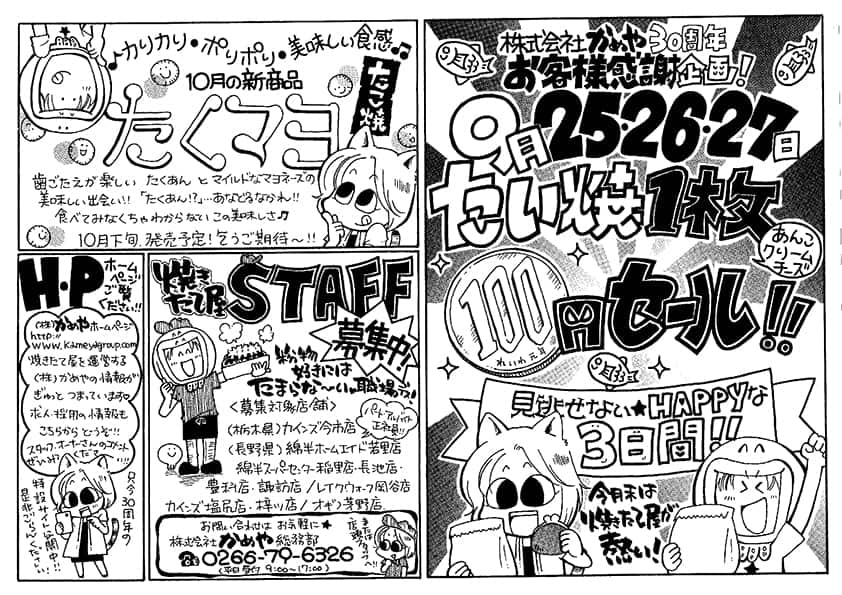 ♪カリカリ・ポリポリ・美味しい食感♪
10月の新商品
たこ焼
たくマヨ
歯ごたえが楽しい たくあん とマイルドなマヨネーズの
美味しい出会い!!「たくあん!?」…あなどるなかれ!!
食べてみなくちゃわからないこの美味しさ♪
10月下旬、発売予定!乞うご期待〜!!
H・P
ホーム
ページ
ご覧
ください!!
(株)かめやホームページ
http://
www.kameyagroup.com
焼きたて屋を運営する
(株)かめやの情報が
ぎゅっとつまっています♡
求人・採用の情報も
こちらからどうぞ!!
スタッフ・オーナーさんのコメント
ぜひみてくださ〜い!!
只今30周年の
特設サイト公開中!!
是非ごらんください!
焼き
たて屋
STAFF
募集中!
粉物
好きには
たまらな〜い♥職場です!
パート・アルバイト
正社員!!
<募集対象店舗>
(栃木県)カインズ今市店
(長野県)綿半ホームエイド若里店
綿半スーパーセンター稲里店・長池店・
豊科店・諏訪店/レイクウォーク岡谷店
カインズ塩尻店・梓川店/オギノ茅野店
お問い合わせは お気軽に★
株式会社かめや総務部
☎0266-79-6326
(平日受付 9:00〜17:00)
または
店頭
株式会社かめや30周年
お客様感謝企画!
9月25・26・27日
たい焼1枚
あんこ
クリーム
チーズ
100
れいわ元年
円セール!!
見逃せない★HAPPYな
3日間!!
今月末は
焼きたて屋が
熱い!